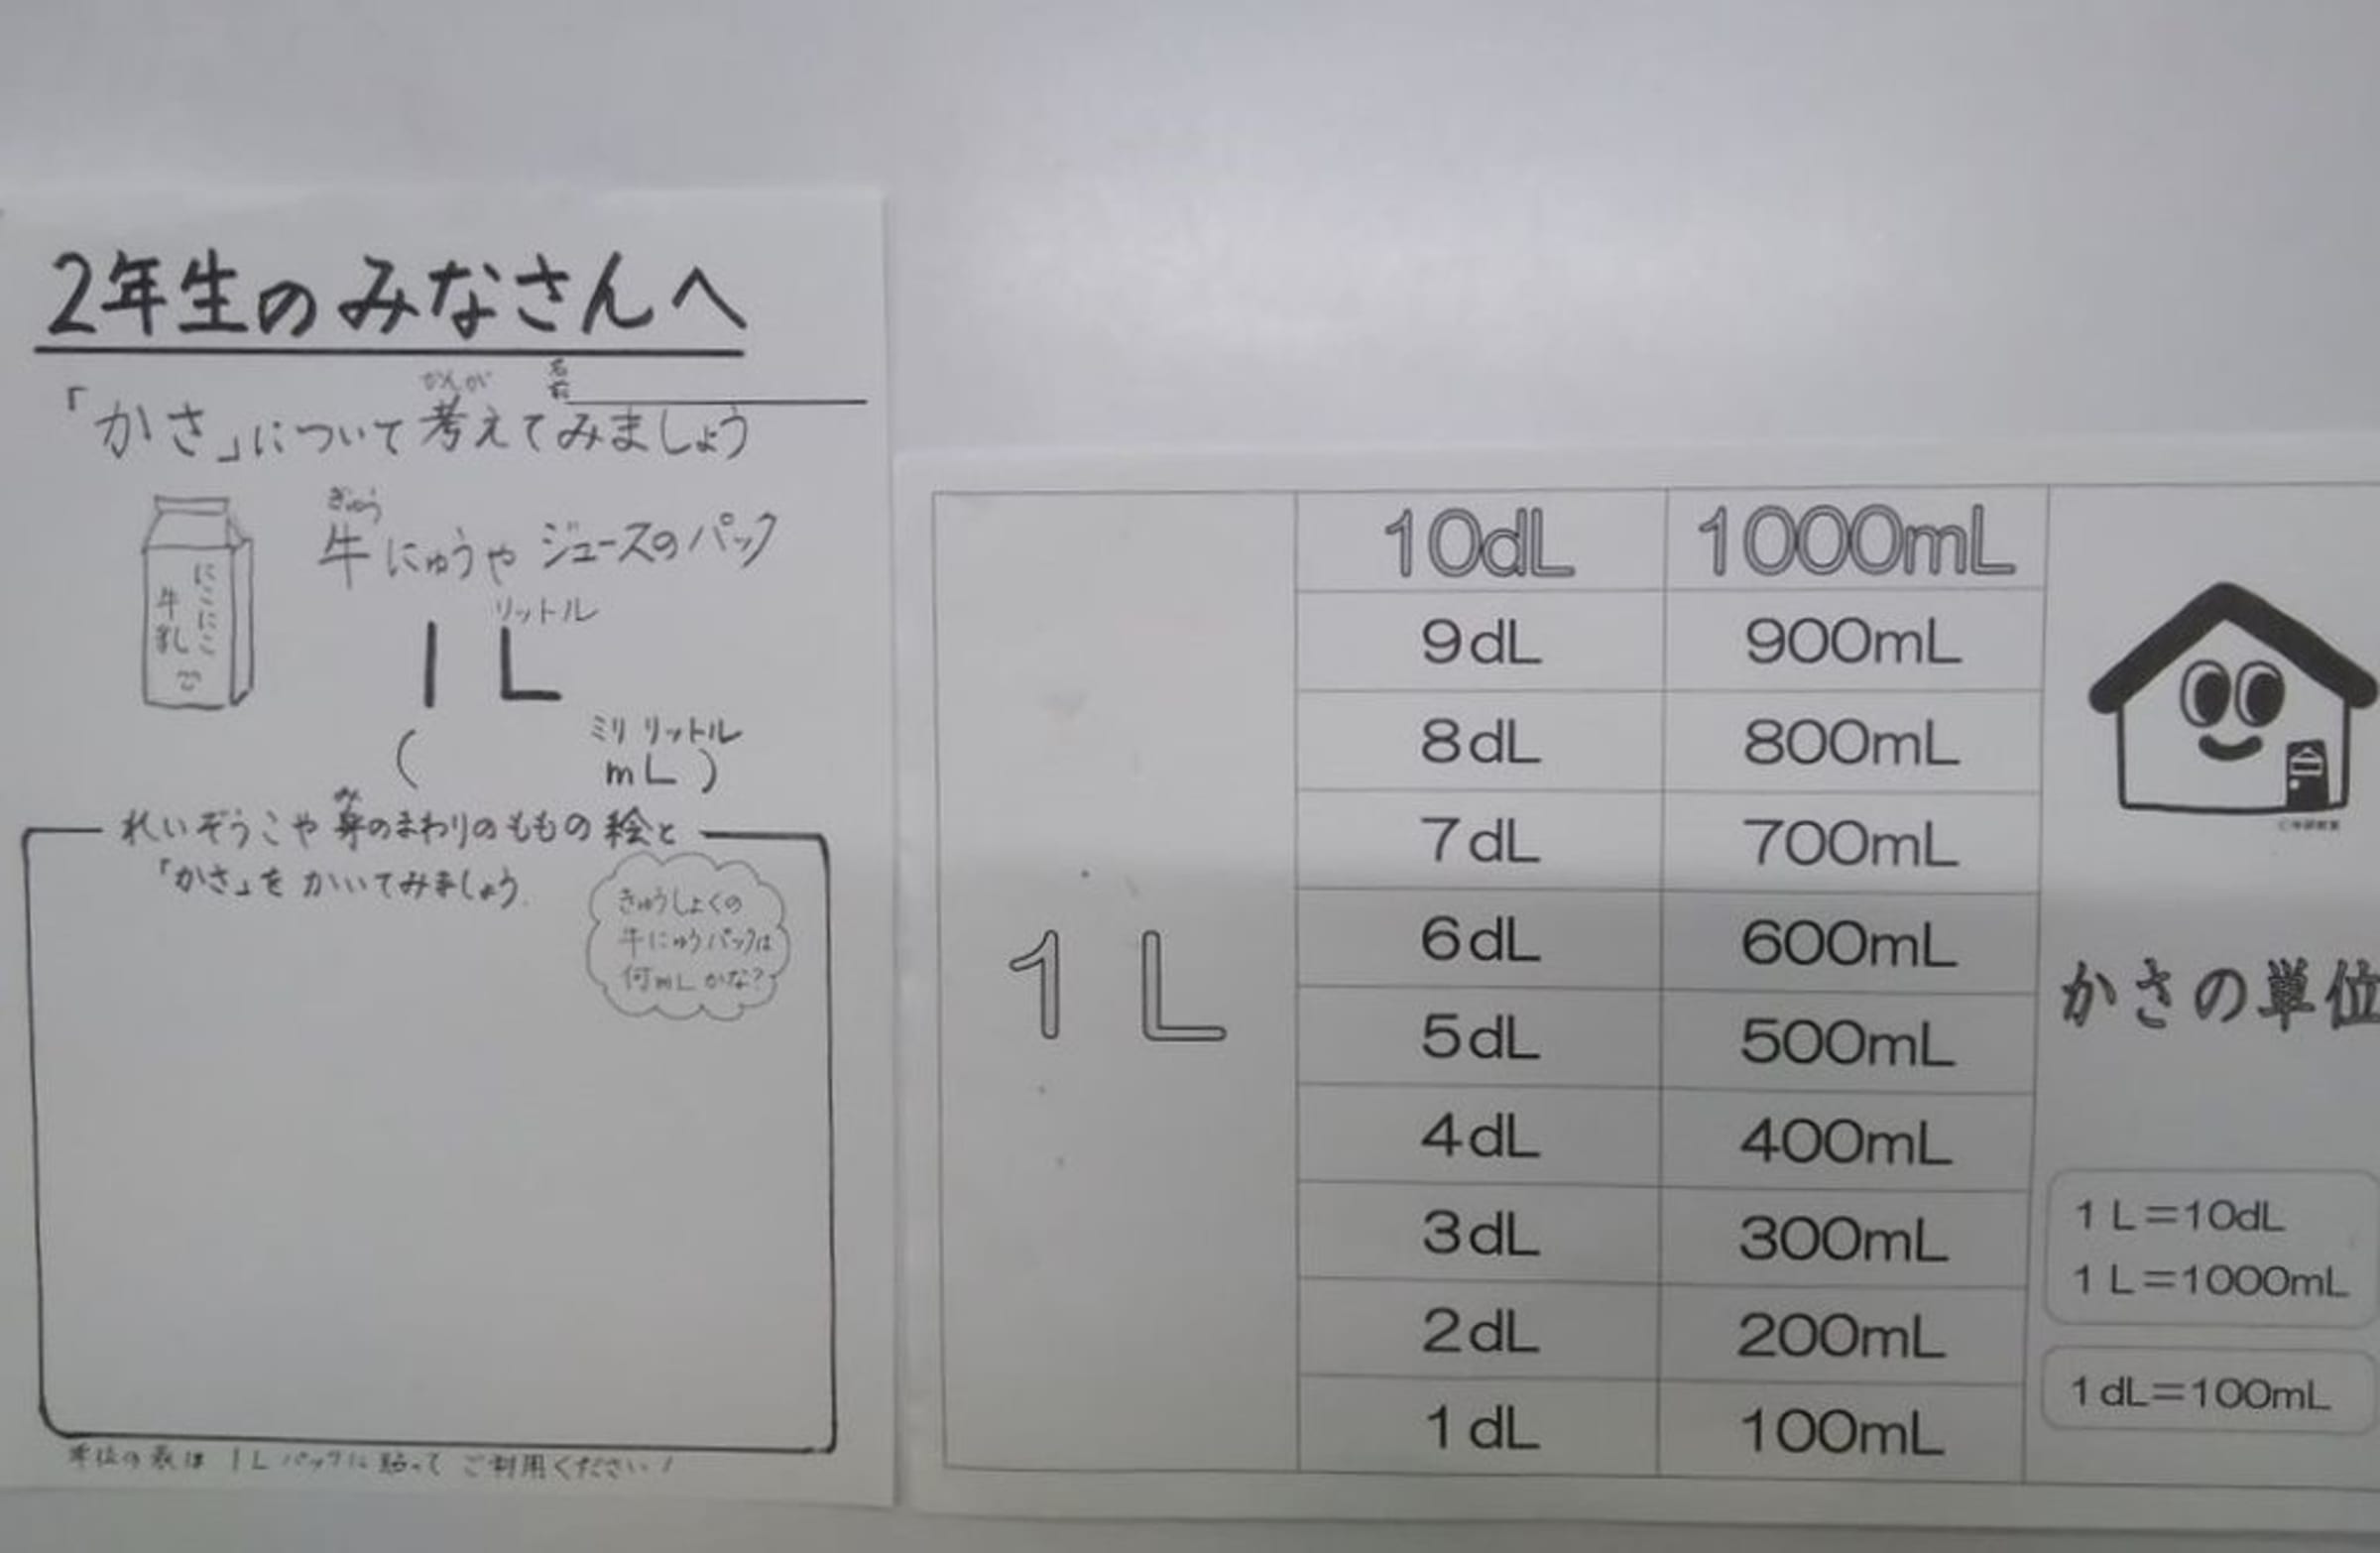 2年生のみなさんへ
名前
「かさ」について考えてみましょう
かんが
にこにこ
牛乳
ぎゅう
牛にゅうや ジュースのパック
リットル
1 L
ミリリットル
( mL )
み
れいぞうこや身のまわりのももの絵と
「かさ」を かいてみましょう.
きゅうしょくの
牛にゅうパックは
何mL かな?
単位の表は 1Lパックに貼って ご利用ください!
1 L
10dL 1000mL
9dL 900mL
8dL 800mL
7dL 700mL
6dL 600mL
5dL 500mL
4dL 400mL
3dL 300mL
2dL 200mL
1dL 100mL
かさの単位
1 L=10dL
1 L=1000mL
1dL=100mL